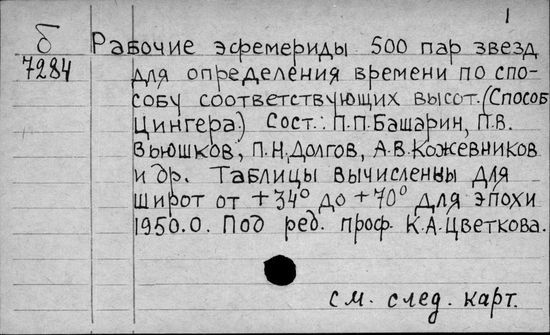 1
б
7284
Рабочие эфемериды 500 пар звезд
для определения времени по спо-
собу соответствующих высот. (Способ
Цингера) Сост.: П.П.Башарин, П.В.
Вьюшков, П.Н.Долгов, А.В.Кожевников
и др. Таблицы вычислены для
широт от +34° до +70° для эпохи
1950.0. Под ред. проф. К.А.Цветкова.
см. след. карт.